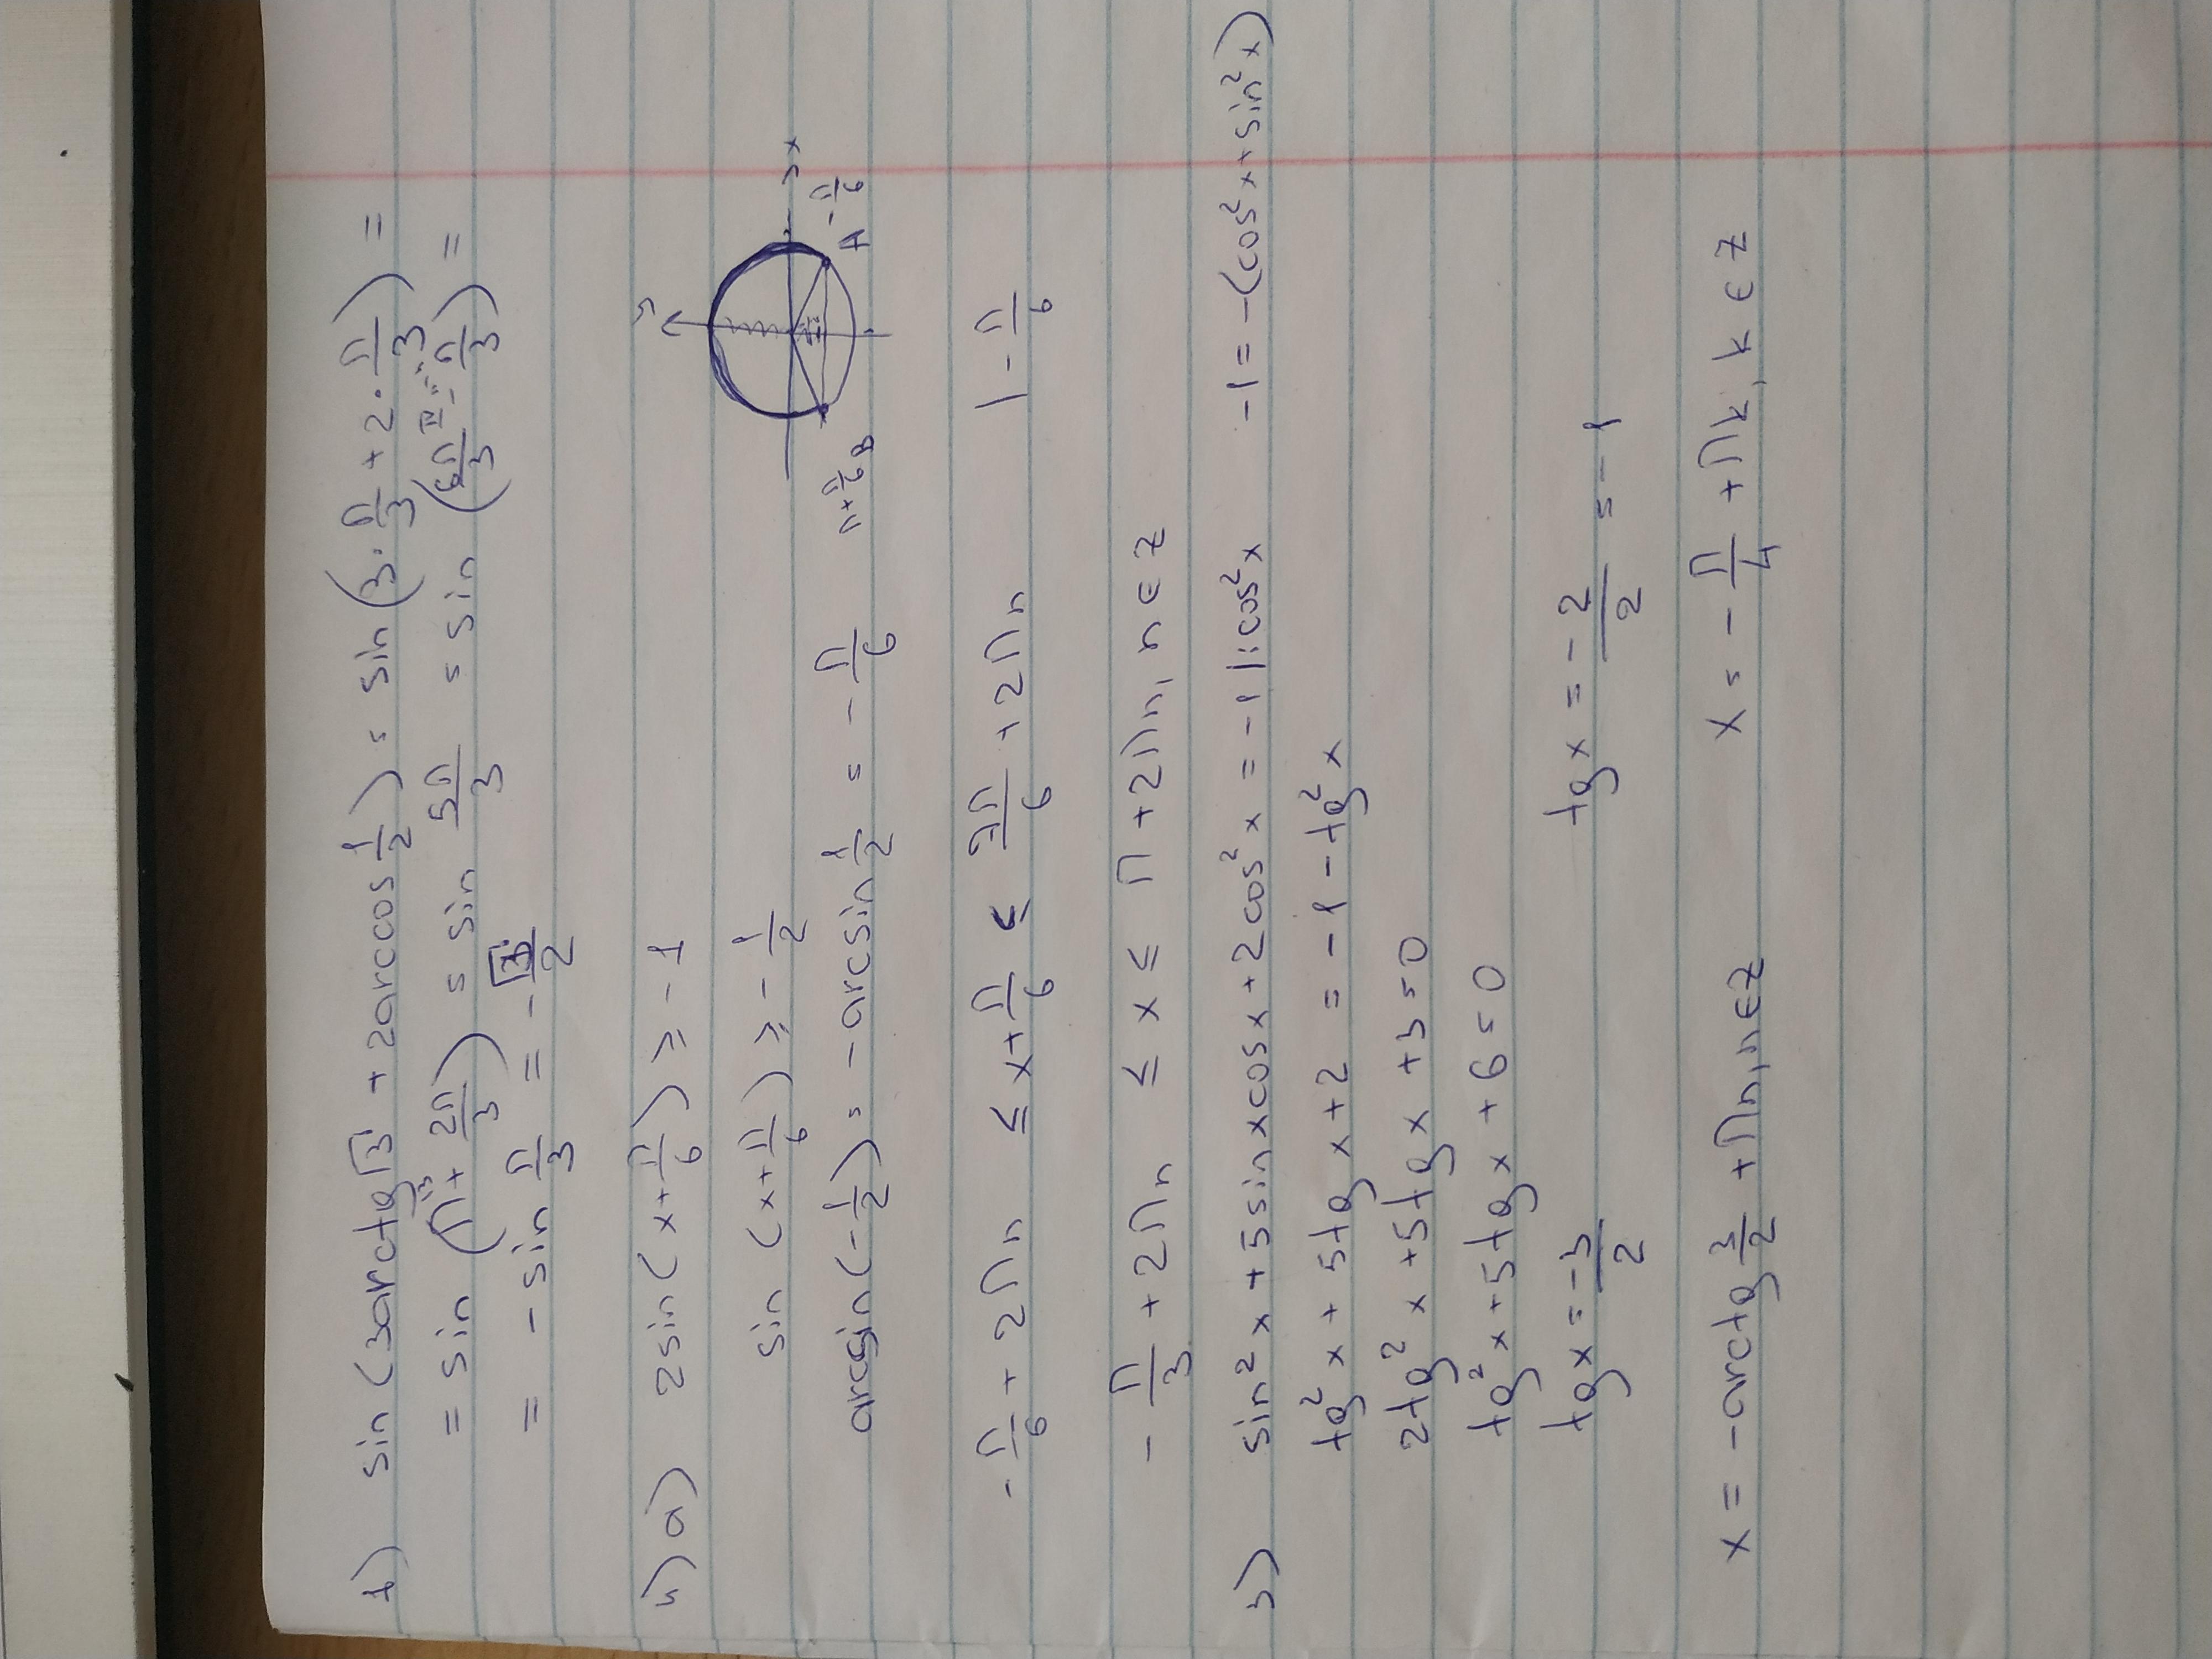 1) sin(3arctg√3 + 2arccos 1/2) = sin(3·π/3 + 2·π/3) =
= sin(π + 2π/3) = sin 5π/3 = sin(6π/3 - π/3) =
= - sin π/3 = - √3/2
a) 2sin(x+π/6) ≥ -1
y
x
sin(x+π/6) ≥ - 1/2
A -π/6
arcsin(-1/2) = -arcsin 1/2 = - π/6
π+π/6 B
-π/6 + 2πn ≤ x+π/6 ≤ 7π/6 + 2πn | -π/6
-π/3 + 2πn ≤ x ≤ π + 2πn, n ∈ Z
sin²x + 5sinxcosx + 2cos²x = -1 |:cos²x -1 = -(cos²x + sin²x)
tg²x + 5tgx + 2 = -1 - tg²x
2tg²x + 5tgx + 3 = 0
tg²x + 5tgx + 6 = 0
tgx = -3/2 tgx = -2/2 = -1
x = -arctg 3/2 + πn, n∈Z x = -π/4 + πk, k ∈ Z